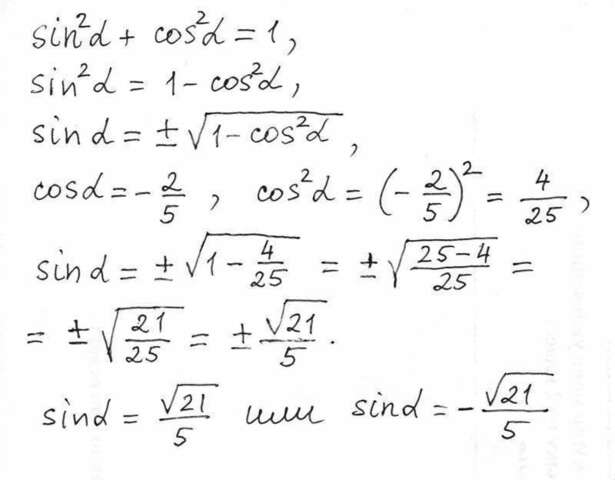 sin²α + cos²α = 1,
sin²α = 1 - cos²α,
sin α = ± √(1 - cos²α),
cos α = - 2/5, cos²α = (- 2/5)² = 4/25,
sin α = ± √(1 - 4/25) = ± √((25-4)/25) =
= ± √(21/25) = ± √21/5.
sin α = √21/5 или sin α = - √21/5